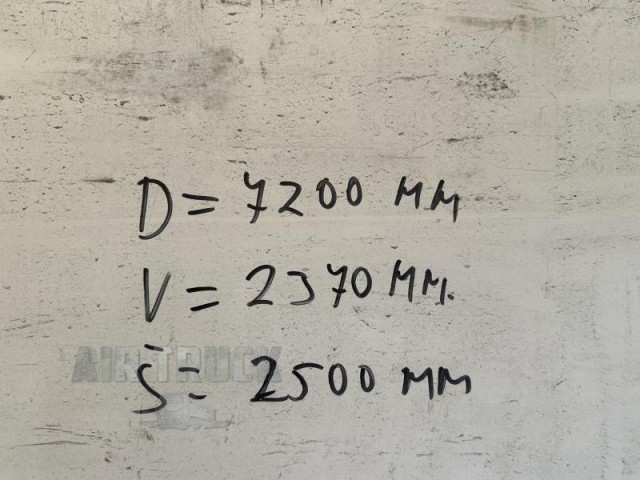 D = 7200 MM
V = 2370 MM.
Š = 2500 MM
AIR TRUCK